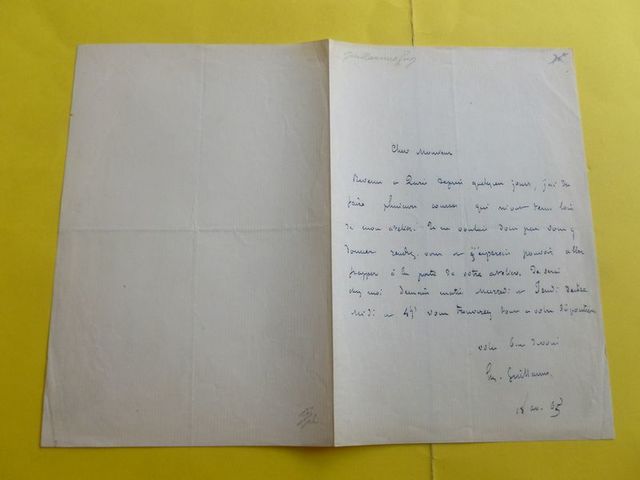 Cher Monsieur
Revenu à Paris depuis quelques jours, j'ai dû
faire plusieurs courses qui m'ont tenu loin
de mon atelier. Je ne voulais donc pas vous y
donner rendez-vous et j'espérais pouvoir aller
frapper à la porte de votre atelier. Je serai
chez moi demain matin Mercredi et Jeudi
midi à vous trouverez tout à votre disposition
votre bien dévoué
Guillaume
18